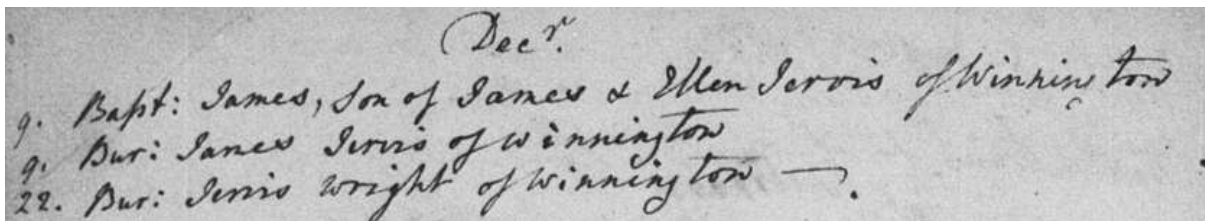 Decr.
9. Bapt: James, Son of James & Ellen Jervis of Winnington
9. Bur: James Jervis of Winnington
22. Bur: Jervis Wright of Winnington —.